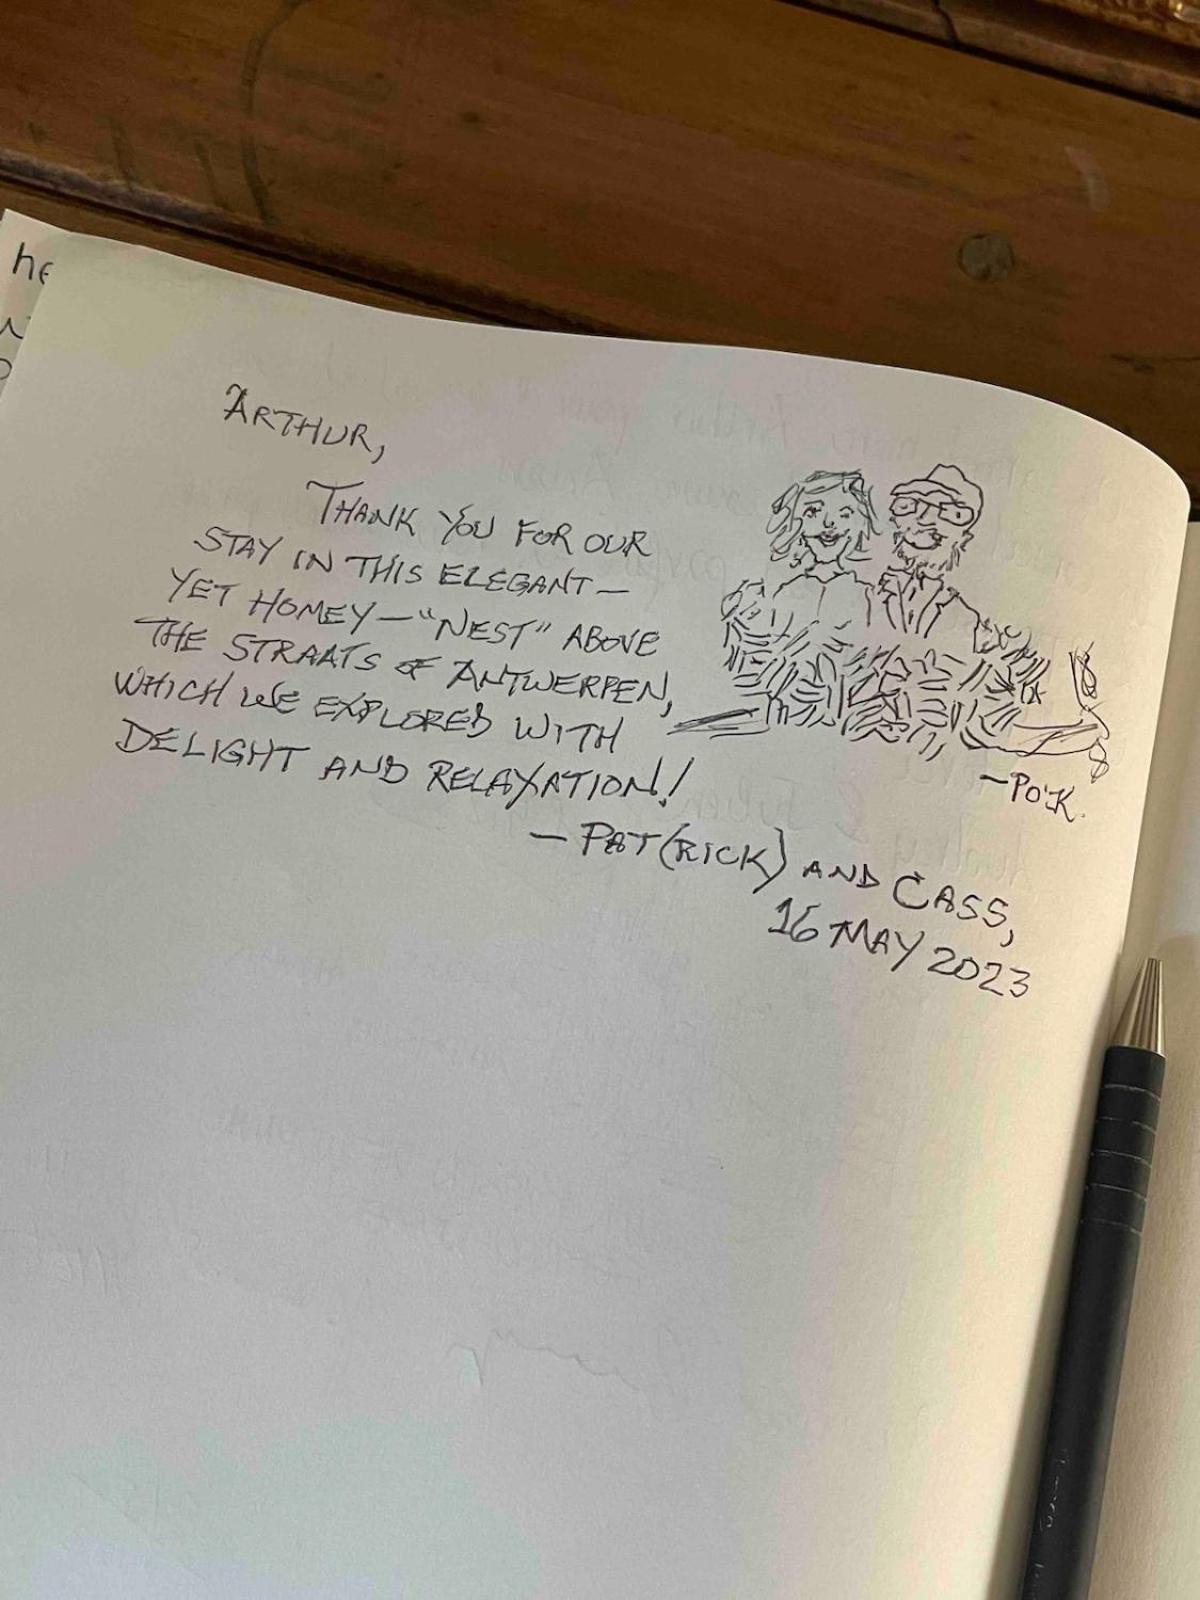 he
ARTHUR,
THANK YOU FOR OUR
STAY IN THIS ELEGANT—
YET HOMEY—"NEST" ABOVE
THE STRAATS OF ANTWERPEN,
WHICH WE EXPLORED WITH
DELIGHT AND RELAXATION!
—PO'K.
— PAT(RICK) AND CASS,
16 MAY 2023